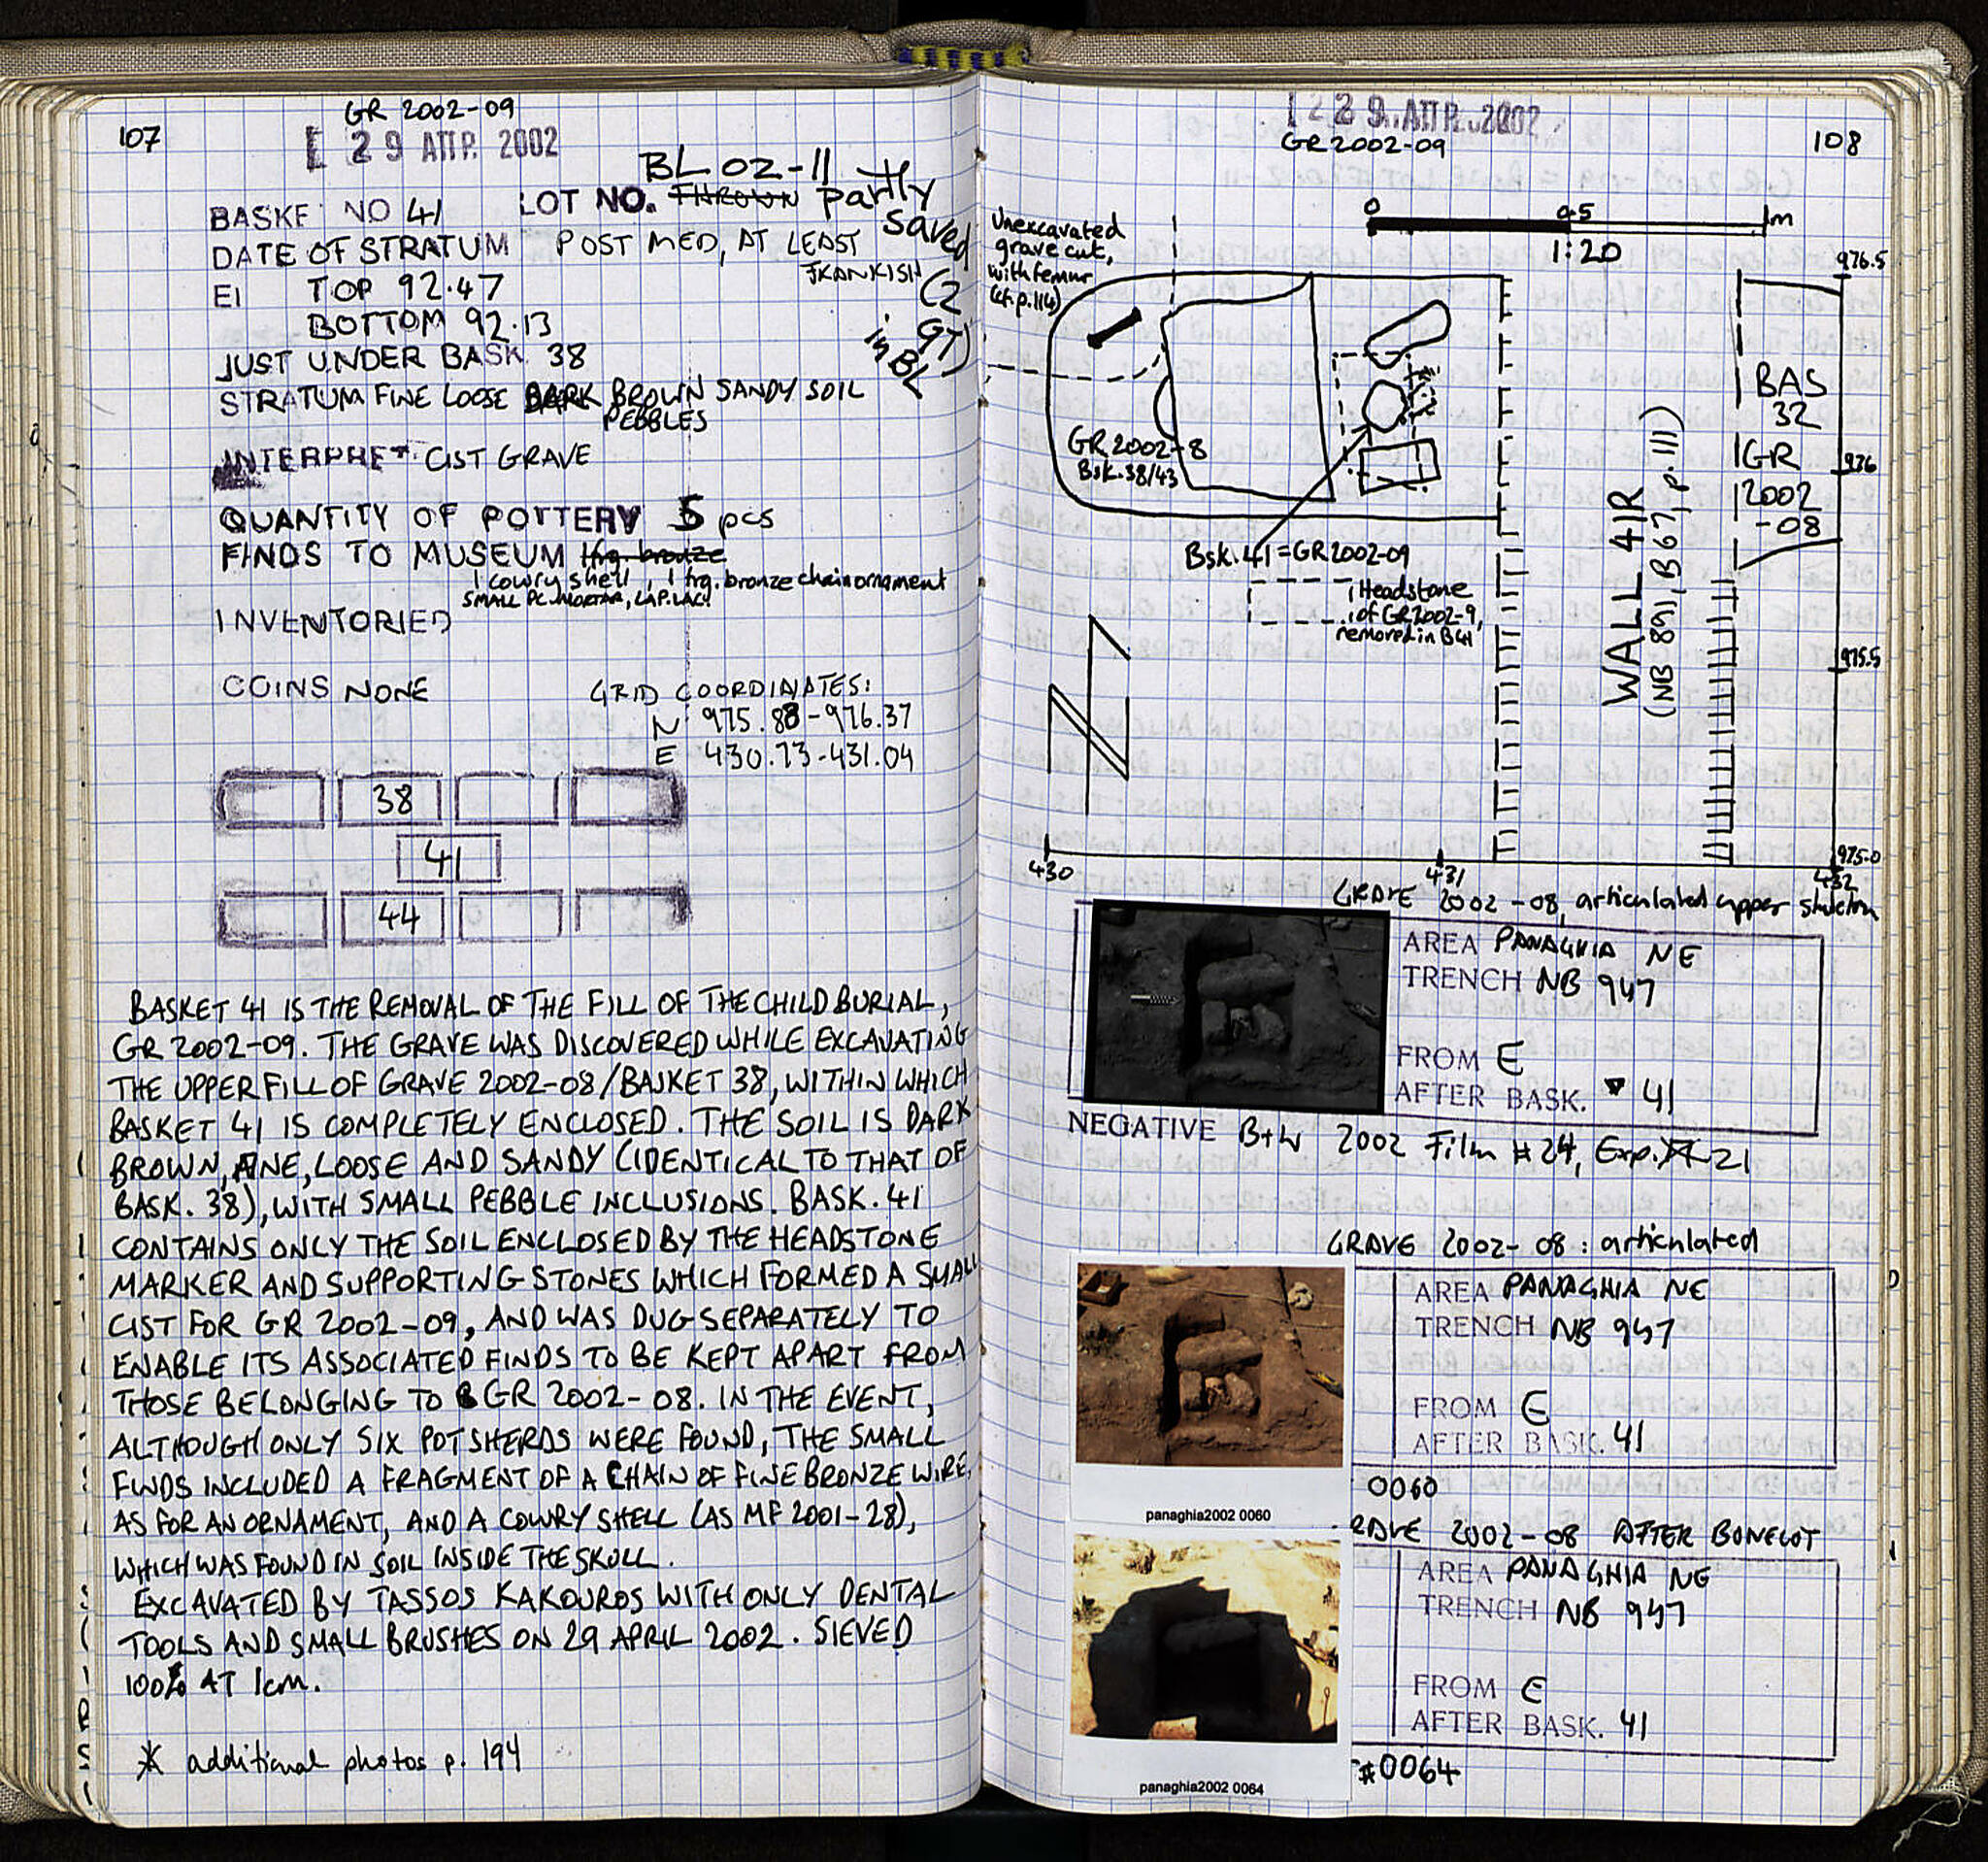 107
GR 2002-09
29 ΑΠΡ. 2002
BL 02-11
BASKET NO 41 LOT NO. THROWN partly saved
(2 GT) in BL
DATE OF STRATUM POST MED, AT LEAST FRANKISH
El TOP 92.47
BOTTOM 92.13
JUST UNDER BASK. 38
STRATUM FINE LOOSE DARK BROWN SANDY SOIL
PEBBLES
INTERPRET. CIST GRAVE
QUANTITY OF POTTERY 5 pcs
FINDS TO MUSEUM 1 frg. bronze
1 cowry shell, 1 frg. bronze chain ornament
SMALL PC. MORTAR, LAP. LAC.
INVENTORIED
COINS NONE
GRID COORDINATES:
N 975.88-976.37
E 430.73-431.04
38
41
44
BASKET 41 IS THE REMOVAL OF THE FILL OF THE CHILD BURIAL,
GR 2002-09. THE GRAVE WAS DISCOVERED WHILE EXCAVATING
THE UPPER FILL OF GRAVE 2002-08/BASKET 38, WITHIN WHICH
BASKET 41 IS COMPLETELY ENCLOSED. THE SOIL IS DARK
BROWN, FINE, LOOSE AND SANDY (IDENTICAL TO THAT OF
BASK. 38), WITH SMALL PEBBLE INCLUSIONS. BASK. 41
CONTAINS ONLY THE SOIL ENCLOSED BY THE HEADSTONE
MARKER AND SUPPORTING STONES WHICH FORMED A SMALL
CIST FOR GR 2002-09, AND WAS DUG SEPARATELY TO
ENABLE ITS ASSOCIATED FINDS TO BE KEPT APART FROM
THOSE BELONGING TO GR 2002-08. IN THE EVENT,
ALTHOUGH ONLY SIX POTSHERDS WERE FOUND, THE SMALL
FINDS INCLUDED A FRAGMENT OF A CHAIN OF FINE BRONZE WIRE,
AS FOR AN ORNAMENT, AND A COWRY SHELL (AS MF 2001-28),
WHICH WAS FOUND IN SOIL INSIDE THE SKULL.
EXCAVATED BY TASSOS KAKOUROS WITH ONLY DENTAL
TOOLS AND SMALL BRUSHES ON 29 APRIL 2002. SIEVED
100% AT 1cm.
* additional photos p. 194
29 ΑΠΡ. 2002
GR 2002-09
108
0 0.5 1m
1:20
Unexcavated
grave cut,
with femur
(cf. p.114)
976.5
GR 2002-8
Bsk. 38/43
BAS
32
GR
2002
-08
976
WALL 41R
(NB 891, B67, p.111)
Bsk. 41 = GR 2002-09
Headstone
of GR 2002-9,
removed in B44
N
975.5
975.0
430
431
432
GRAVE 2002-08, articulated upper skeleton
AREA PANAGHIA NE
TRENCH NB 947
FROM E
AFTER BASK. 41
NEGATIVE B+W 2002 Film #24, Exp. 21
GRAVE 2002-08: articulated
AREA PANAGHIA NE
TRENCH NB 947
FROM E
AFTER BASK. 41
panaghia2002 0060
0060
GRAVE 2002-08 AFTER BONELOT
AREA PANAGHIA NE
TRENCH NB 947
FROM E
AFTER BASK. 41
panaghia2002 0064
#0064